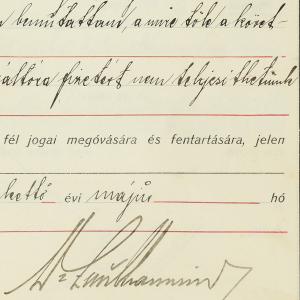 bemutattam, a mire tőle a követ-
váltóra fizetést nem teljesíthetünk
fél jogai megóvására és fentartására, jelen
kettő évi május hó
Dr